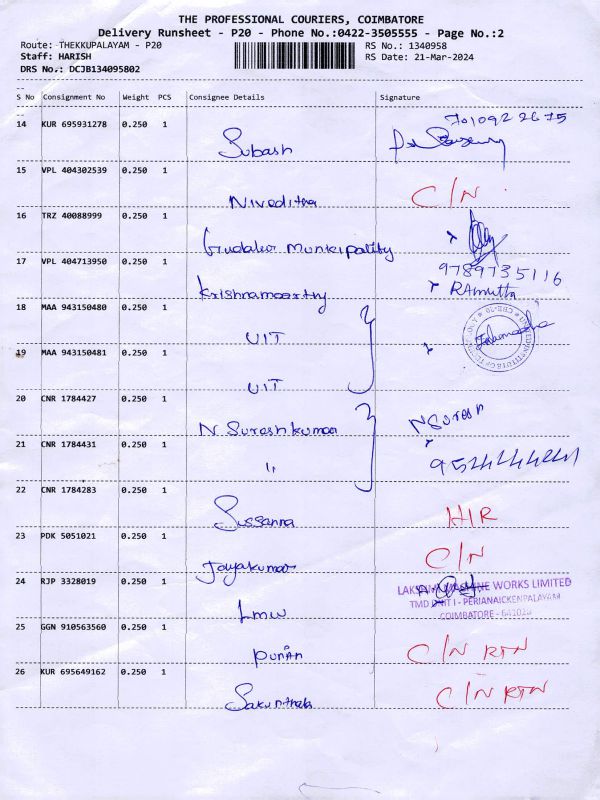 THE PROFESSIONAL COURIERS, COIMBATORE
Delivery Runsheet - P20 - Phone No.:0422-3505555 - Page No.:2
Route: THEKKUPALAYAM - P20 RS No.: 1340958
Staff: HARISH RS Date: 21-Mar-2024
DRS No.: DCJB134095802
S No Consignment No Weight PCS Consignee Details Signature
14 KUR 695931278 0.250 1 Subash
15 VPL 404302539 0.250 1 Niveditha C/N
16 TRZ 40088999 0.250 1 Gudalur Municipality
17 VPL 404713950 0.250 1 Krishnamoorthy 9789735116
RAmutha
18 MAA 943150480 0.250 1 UIT
19 MAA 943150481 0.250 1 UIT
20 CNR 1784427 0.250 1 N. Sureshkumar N Suresh
21 CNR 1784431 0.250 1 "
22 CNR 1784283 0.250 1 Sussanna H/R
23 PDK 5051021 0.250 1 Jayakumar C/N
24 RJP 3328019 0.250 1 LMW
LAKSHMI MACHINE WORKS LIMITED
TMD UNIT I - PERIANAICKENPALAYAM
COIMBATORE - 641020
25 GGN 910563560 0.250 1 C/N RTN
26 KUR 695649162 0.250 1 Sakunthala C/N RTN